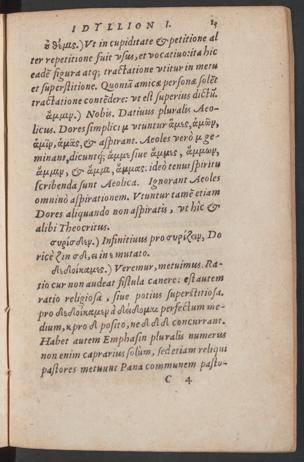 IDYLLION I.
ὃ θέμις.) Vt in cupiditate & petitione al
ter repetitione fuit vsus, et vocatiuo: ita hic
eadẽ figura atq; tractatione vtitur in metu
et superstitione. Quoniã amicæ personæ solẽt
tractatione contẽdere: vt est superius dictũ.
ἄμμιν.) Nobis. Datiuus pluralis Aeo-
licus. Dores simplici μ vtuntur
& aspirant. Aeoles verò μ ge-
minant, dicuntq; ἄμμες siue
&
ideo tenui spiritu
scribenda sunt Aeolica. Ignorant Aeoles
omninò aspirationem. Vtuntur tamẽ etiam
Dores aliquando non aspiratis, vt hic &
alibi Theocritus.
συρίσδεν.) Infinitiuus pro συρίζειν, Do
ricè ζ in σδ, ει in ε mutato.
δεδοίκαμες.) Veremur, metuimus. Ra-
tio cur non audeat fistula canere: est autem
ratio religiosa, siue potius superstitiosa.
pro δεδοίκαμεν à perfectum me-
dium, κ pro δ posito, ne δ δ δ concurrant.
Habet autem Emphasin pluralis numerus
non enim caprarius solùm, sed etiam reliqui
pastores metuunt Pana communem pasto-
C 4